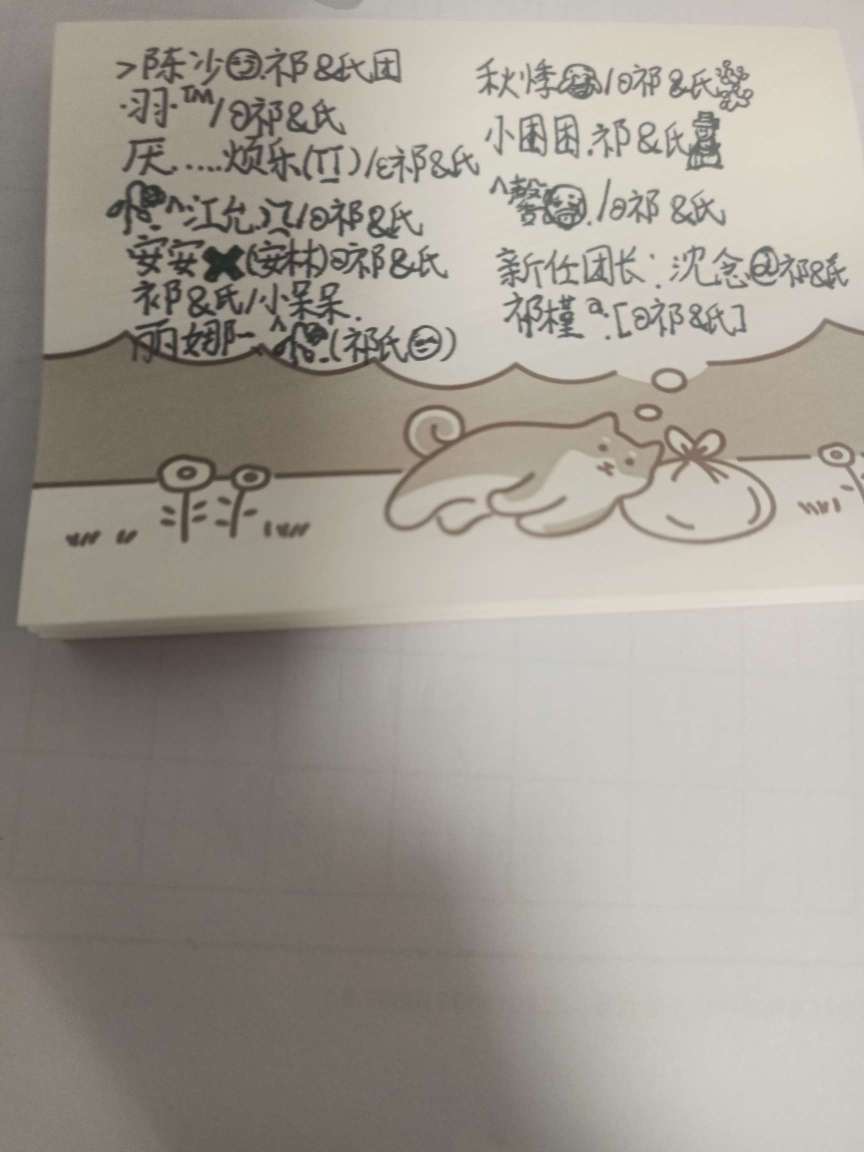 >陈沙.祁&氏团
·羽·™/日祁&氏
厌.....烦乐(兀)/ε祁&氏
^江允.)乁/日祁&氏
安安✖(安林)日祁&氏
祁&氏/小呆呆.
丽娜一^.(祁氏)
秋悸/日祁&氏
小困困.祁&氏
^./日祁&氏
新任团长:沈念@祁&氏
祁槿ª.[日祁&氏]